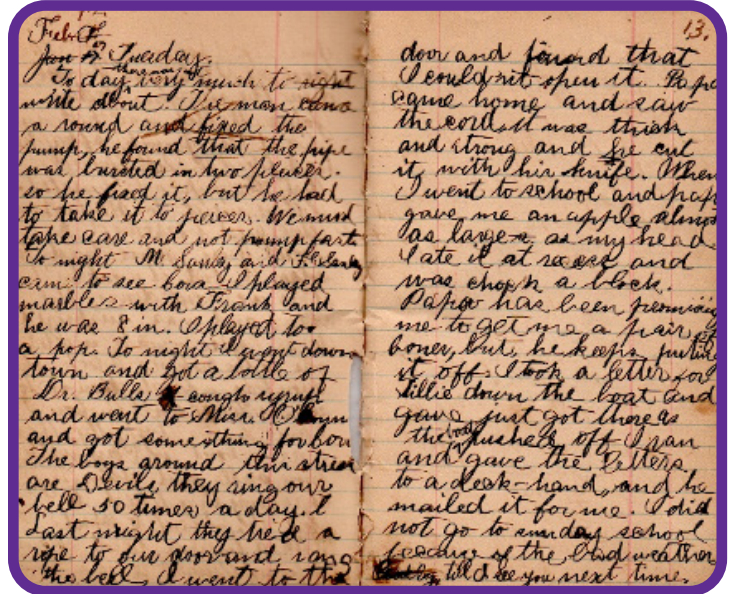 Feb
Jan 27 Tuesday.
To day there not very much to right
write about. The man came
a round and fixed the
pump, he found that the pipe
was bursted in two places.
so he fixed it, but he had
to take it to pieces. We must
take care and not pump fast.
To night M. Sandy and
came to see I played
marbles with Frank and
he was 8 in. I played too
a pop. To night I went down
town and got a bottle of
Dr. Bulls cough syrup
and went to Miss.
and got something for
The boys around this street
are Devils, they ring our
bell 50 times a day.
Last night they tied a
rope to our door and rang
the bell, I went to the
13.
door and found that
I could'nt open it. Papa
came home and saw
the cord. It was thick
and strong and he cut
it with his knife. When
I went to school and papa
gave me an apple almost
as large as my head
I ate it at recess and
was a block.
Papa has been promising
me to get me a pair of
bones, but he keeps putting
it off. I took a letter for
Tillie down the boat and
gave just got there as
the boat pushed off I ran
and gave the letters
to a deck-hand, and he
mailed it for me I did
not go to sunday school
because of the bad weather
till I see you next time.